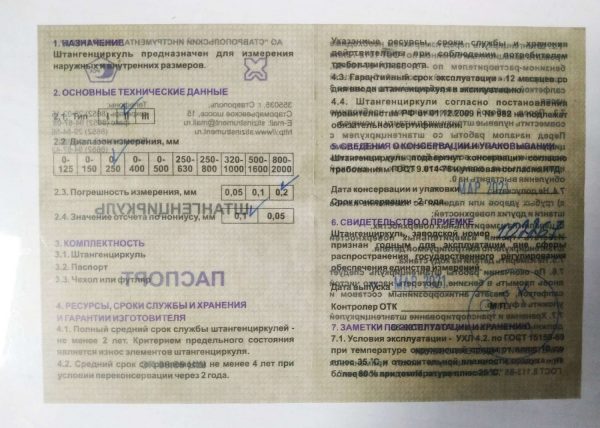 1. НАЗНАЧЕНИЕ
Штангенциркуль предназначен для измерения
наружных и внутренних размеров.
2. ОСНОВНЫЕ ТЕХНИЧЕСКИЕ ДАННЫЕ
2.1. Тип I II III
2.2. Диапазон измерения, мм
0-125 0-150 0-250 0-400 0-500 250-630 250-800 320-1000 500-1600 800-2000
2.3. Погрешность измерения, мм 0,05 0,1 0,2
2.4. Значение отсчета по нониусу, мм 0,1 0,05
3. КОМПЛЕКТНОСТЬ
3.1. Штангенциркуль
3.2. Паспорт
3.3. Чехол или футляр
4. РЕСУРСЫ, СРОКИ СЛУЖБЫ И ХРАНЕНИЯ
И ГАРАНТИИ ИЗГОТОВИТЕЛЯ
4.1. Полный средний срок службы штангенциркулей -
не менее 2 лет. Критерием предельного состояния
является износ элементов штангенциркуля.
4.2. Средний срок сохраняемости не менее 4 лет при
условии переконсервации через 2 года.
Указанные ресурсы, сроки службы и хранения
действительны при соблюдении потребителем
требований паспорта.
4.3. Гарантийный срок эксплуатации - 12 месяцев со
дня ввода штангенциркуля в эксплуатацию.
4.4. Штангенциркули согласно постановления
правительства РФ от 01.12.2009 г. № 982 не подлежат
обязательной сертификации.
5. СВЕДЕНИЯ О КОНСЕРВАЦИИ И УПАКОВЫВАНИИ
Штангенциркуль подвергнут консервации согласно
требованиям ГОСТ 9.014-78 и упакован
Дата консервации и упаковки МАР 2021
Срок консервации - 2 года.
6. СВИДЕТЕЛЬСТВО О ПРИЕМКЕ
Штангенциркуль, заводской номер
признан годным для эксплуатации вне сферы
распространения государственного регулирования
обеспечения единства измерений
Дата выпуска МАР 2021
Контролер ОТК М.П.
7. ЗАМЕТКИ ПО ЭКСПЛУАТАЦИИ И ХРАНЕНИЮ
7.1. Условия эксплуатации - УХЛ 4.2. по ГОСТ 15150-69
при температуре окружающей среды от плюс 10 до
плюс 35 °С и относительной влажности воздуха не
более 80 % при температуре плюс 25 °С.